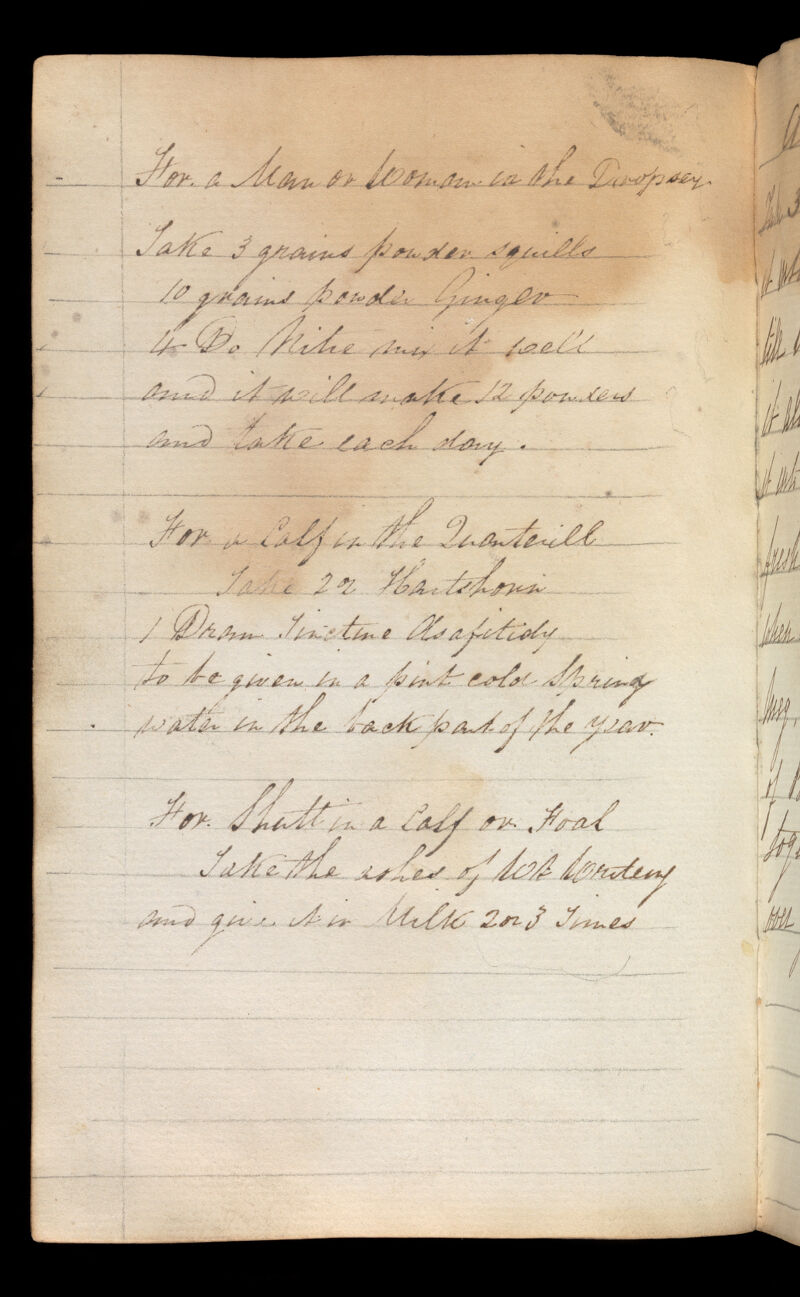 For. a Man or Woman in the Dropsey.
Take 3 grains powder squills
10 grains powder Ginger
4 Do Nitre mix it well
and it will make 12 powders
and take each day.
For a Calf in the Quarterill
Take 2 oz Hartshorn
1 Dram Tincture Asafitidy
to be given in a pint cold Spring
water in the back part of the year.
For. Shutt in a Calf or Foal
Take the ashes of
and give it in Milk 2 or 3 Times